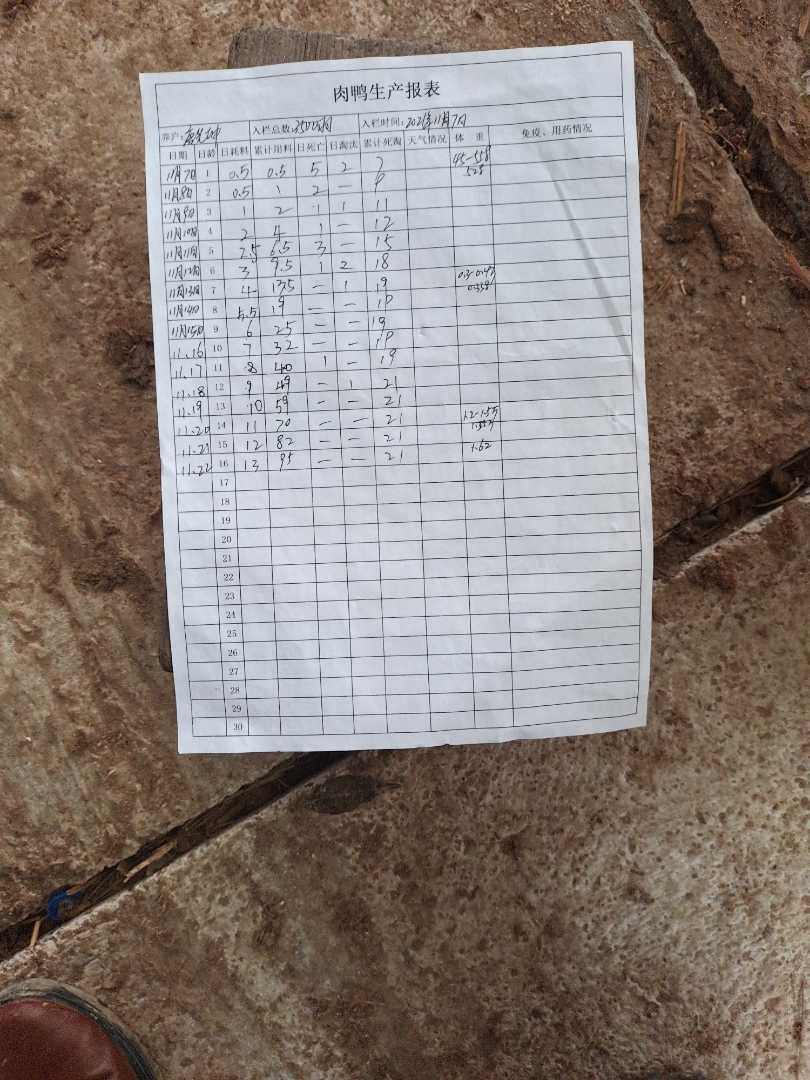 肉鸭生产报表
养户: 入栏总数: 2500只 入栏时间: 2021年11月7日
日期 日龄 日耗料 累计用料 日死亡 日淘汰 累计死淘 天气情况 体 重 免疫、用药情况
11月7日 1 0.5 0.5 5 2 7 45-55g 52g
11月8日 2 0.5 1 2 — 9
11月9日 3 1 2 1 1 11
11月10日 4 2 4 1 — 12
11月11日 5 2.5 6.5 3 — 15
11月12日 6 3 9.5 1 2 18
11月13日 7 4 13.5 — 1 19
11月14日 8 5.5 19 — — 19
11月15日 9 6 25 — — 19
11.16 10 7 32 — — 19
11.17 11 8 40 1 — 19
11.18 12 9 49 — 1 21
11.19 13 10 59 — — 21
11.20 14 11 70 — — 21
11.21 15 12 82 — — 21 1.62
11.22 16 13 95 — — 21
17
18
19
20
21
22
23
24
25
26
27
28
29
30